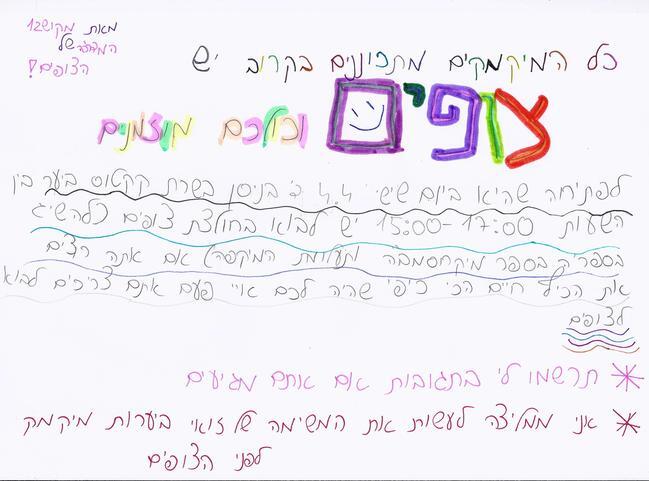 מאת מקוש12
המדריכה של
הצופים!
כל המיקמקים מתכוננים בקרוב יש
צופים
וכולכם מוזמנים
לפתיחה שהיא ביום שישי 4.4 ג' בניסן בשרת קקטוס ביער בין
השעות 15:00-17:00 יש לבוא בחולצת צופים (להשיג
בספריה בספר מיקחסמבה תעלומת המיקפה) אם אתה רוצים
את הכילו חיים הכי כיפי שהיה לכם אויי פעם אתם צריכים לבוא
לצופים
תרשמו לי בתגובות אם אתם מגיעים
אני ממליצה לעשות את המשימה של זואי ביערות מיקמק
לפני הצופים